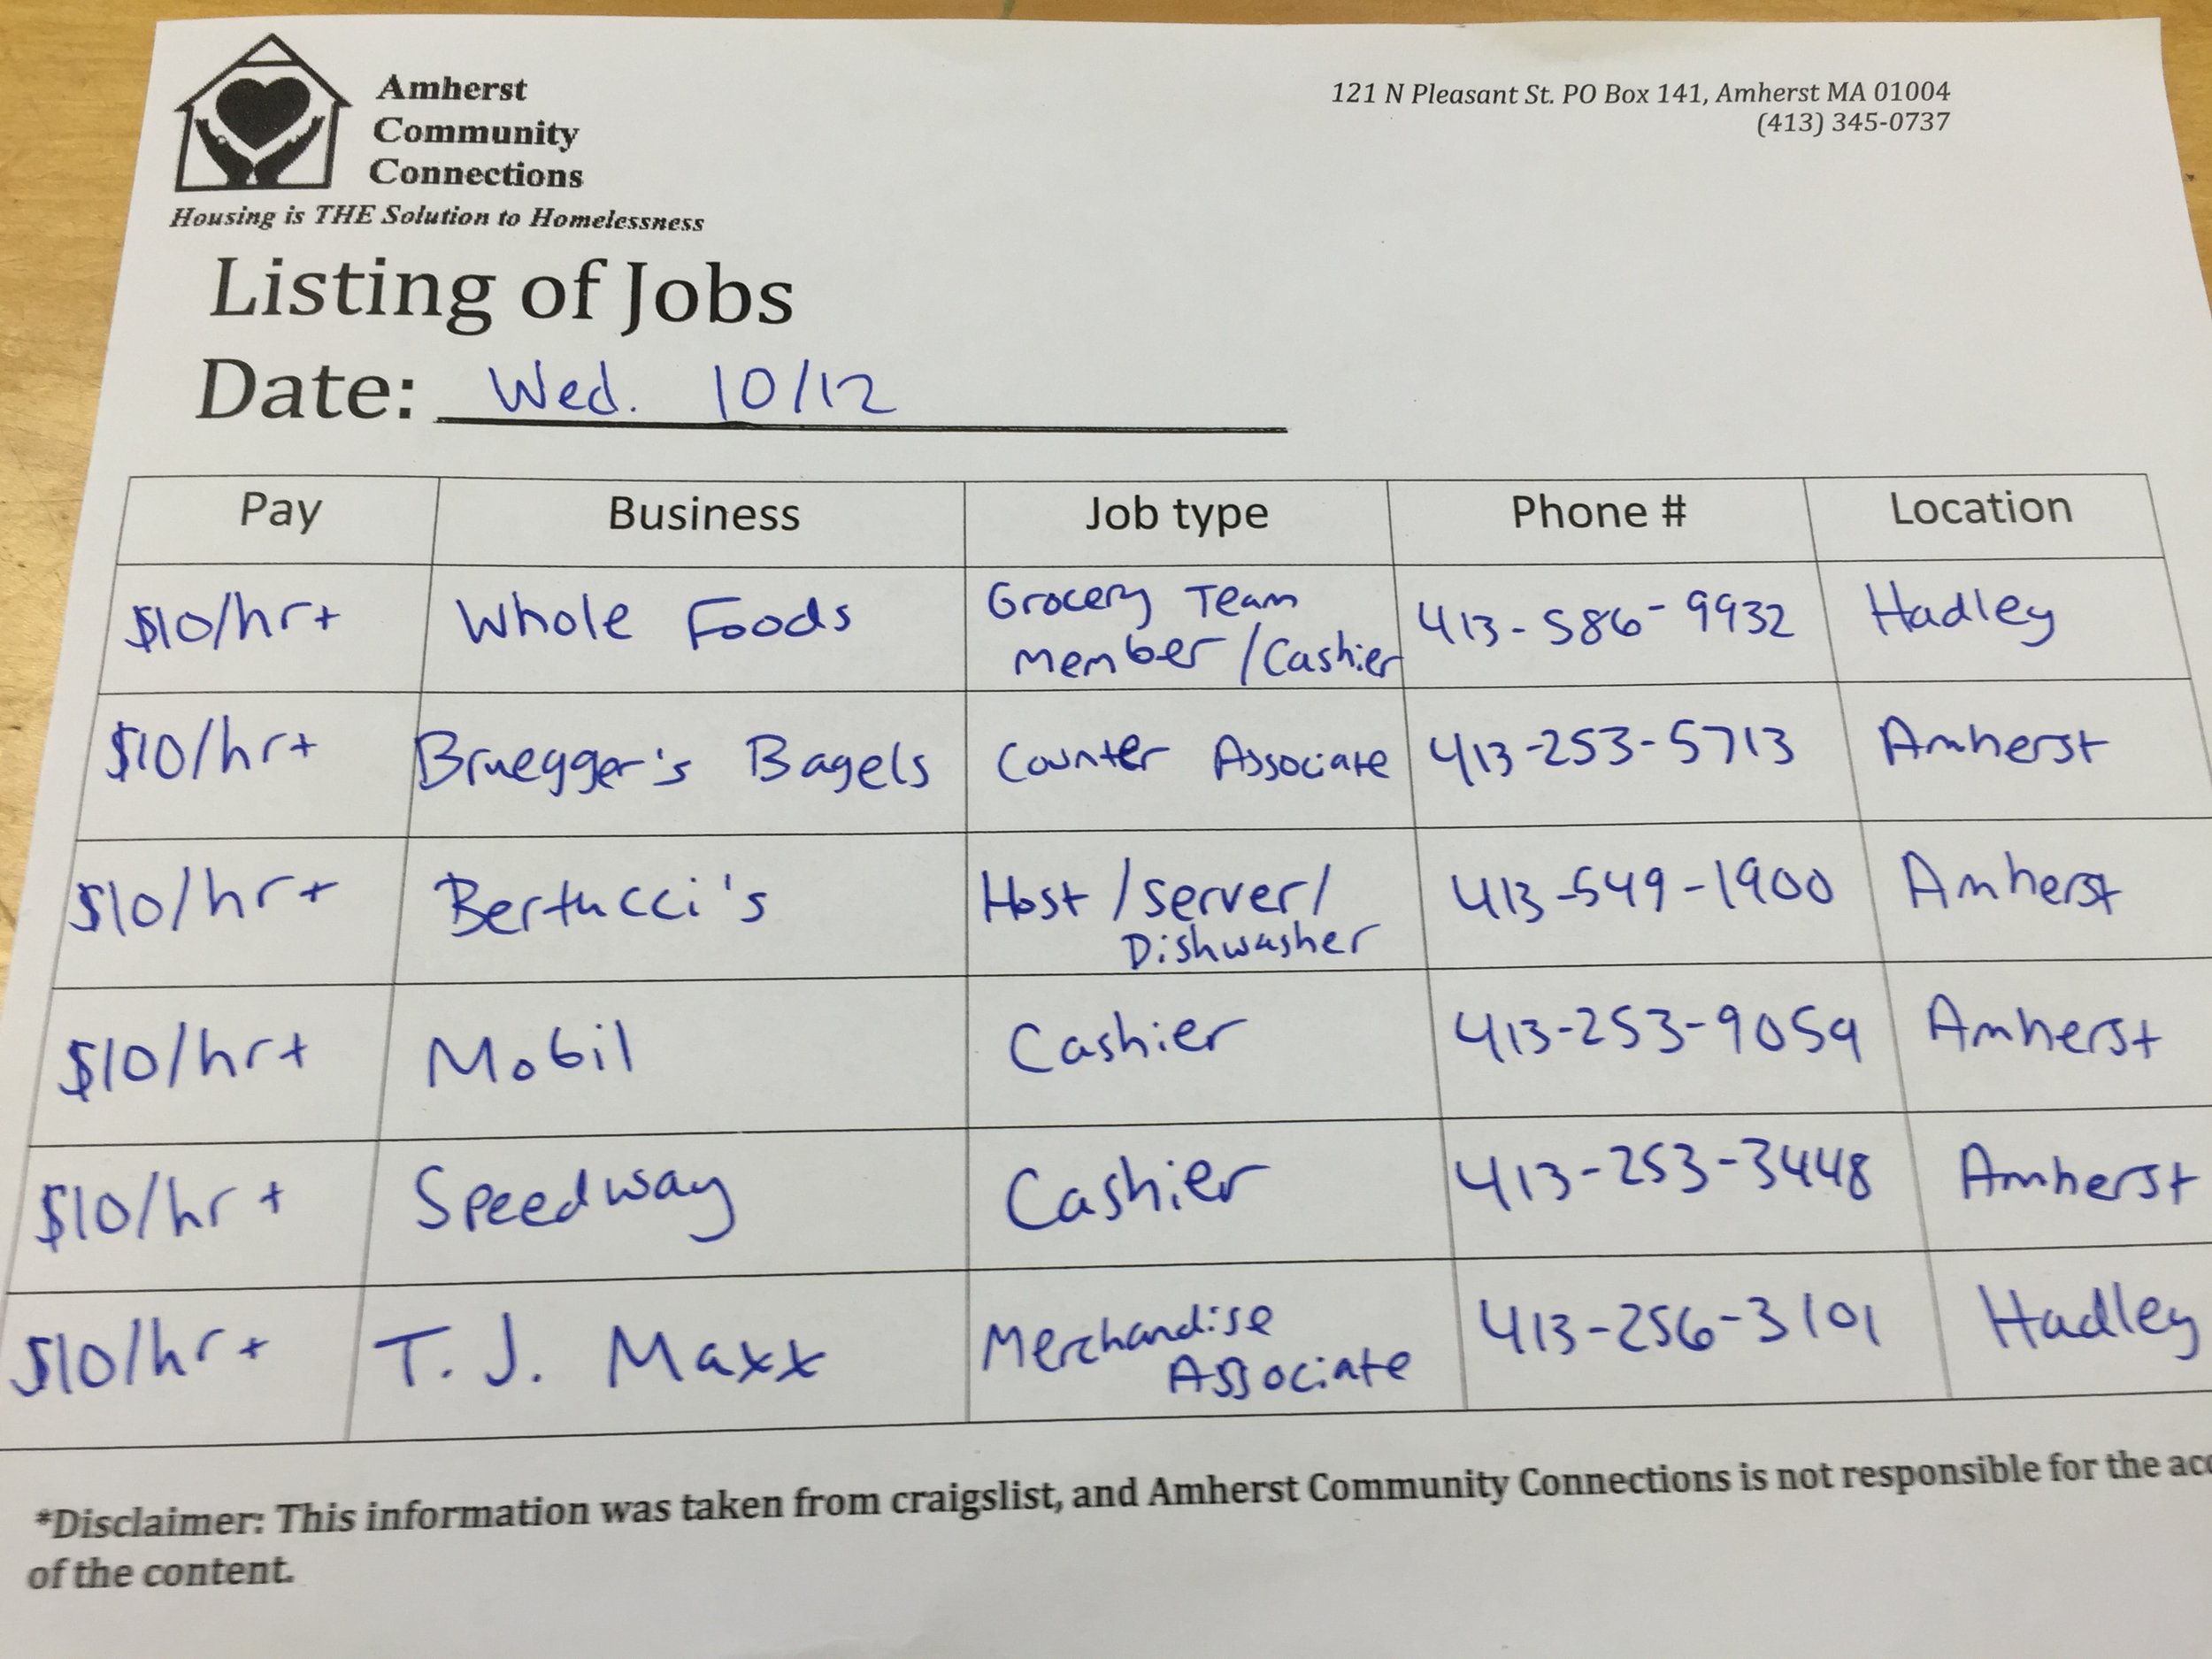 Amherst
Community
Connections
Housing is THE Solution to Homelessness
121 N Pleasant St. PO Box 141, Amherst MA 01004
(413) 345-0737
Listing of Jobs
Date: Wed. 10/12
Pay Business Job type Phone # Location
$10/hr+ Whole Foods Grocery Team
member/Cashier 413-586-9932 Hadley
$10/hr+ Bruegger's Bagels Counter Associate 413-253-5713 Amherst
$10/hr+ Bertucci's Host/Server/
Dishwasher 413-549-1900 Amherst
$10/hr+ Mobil Cashier 413-253-9059 Amherst
$10/hr+ Speedway Cashier 413-253-3448 Amherst
$10/hr+ T.J. Maxx Merchandise
Associate 413-256-3101 Hadley
*Disclaimer: This information was taken from craigslist, and Amherst Community Connections is not responsible for the
of the content.